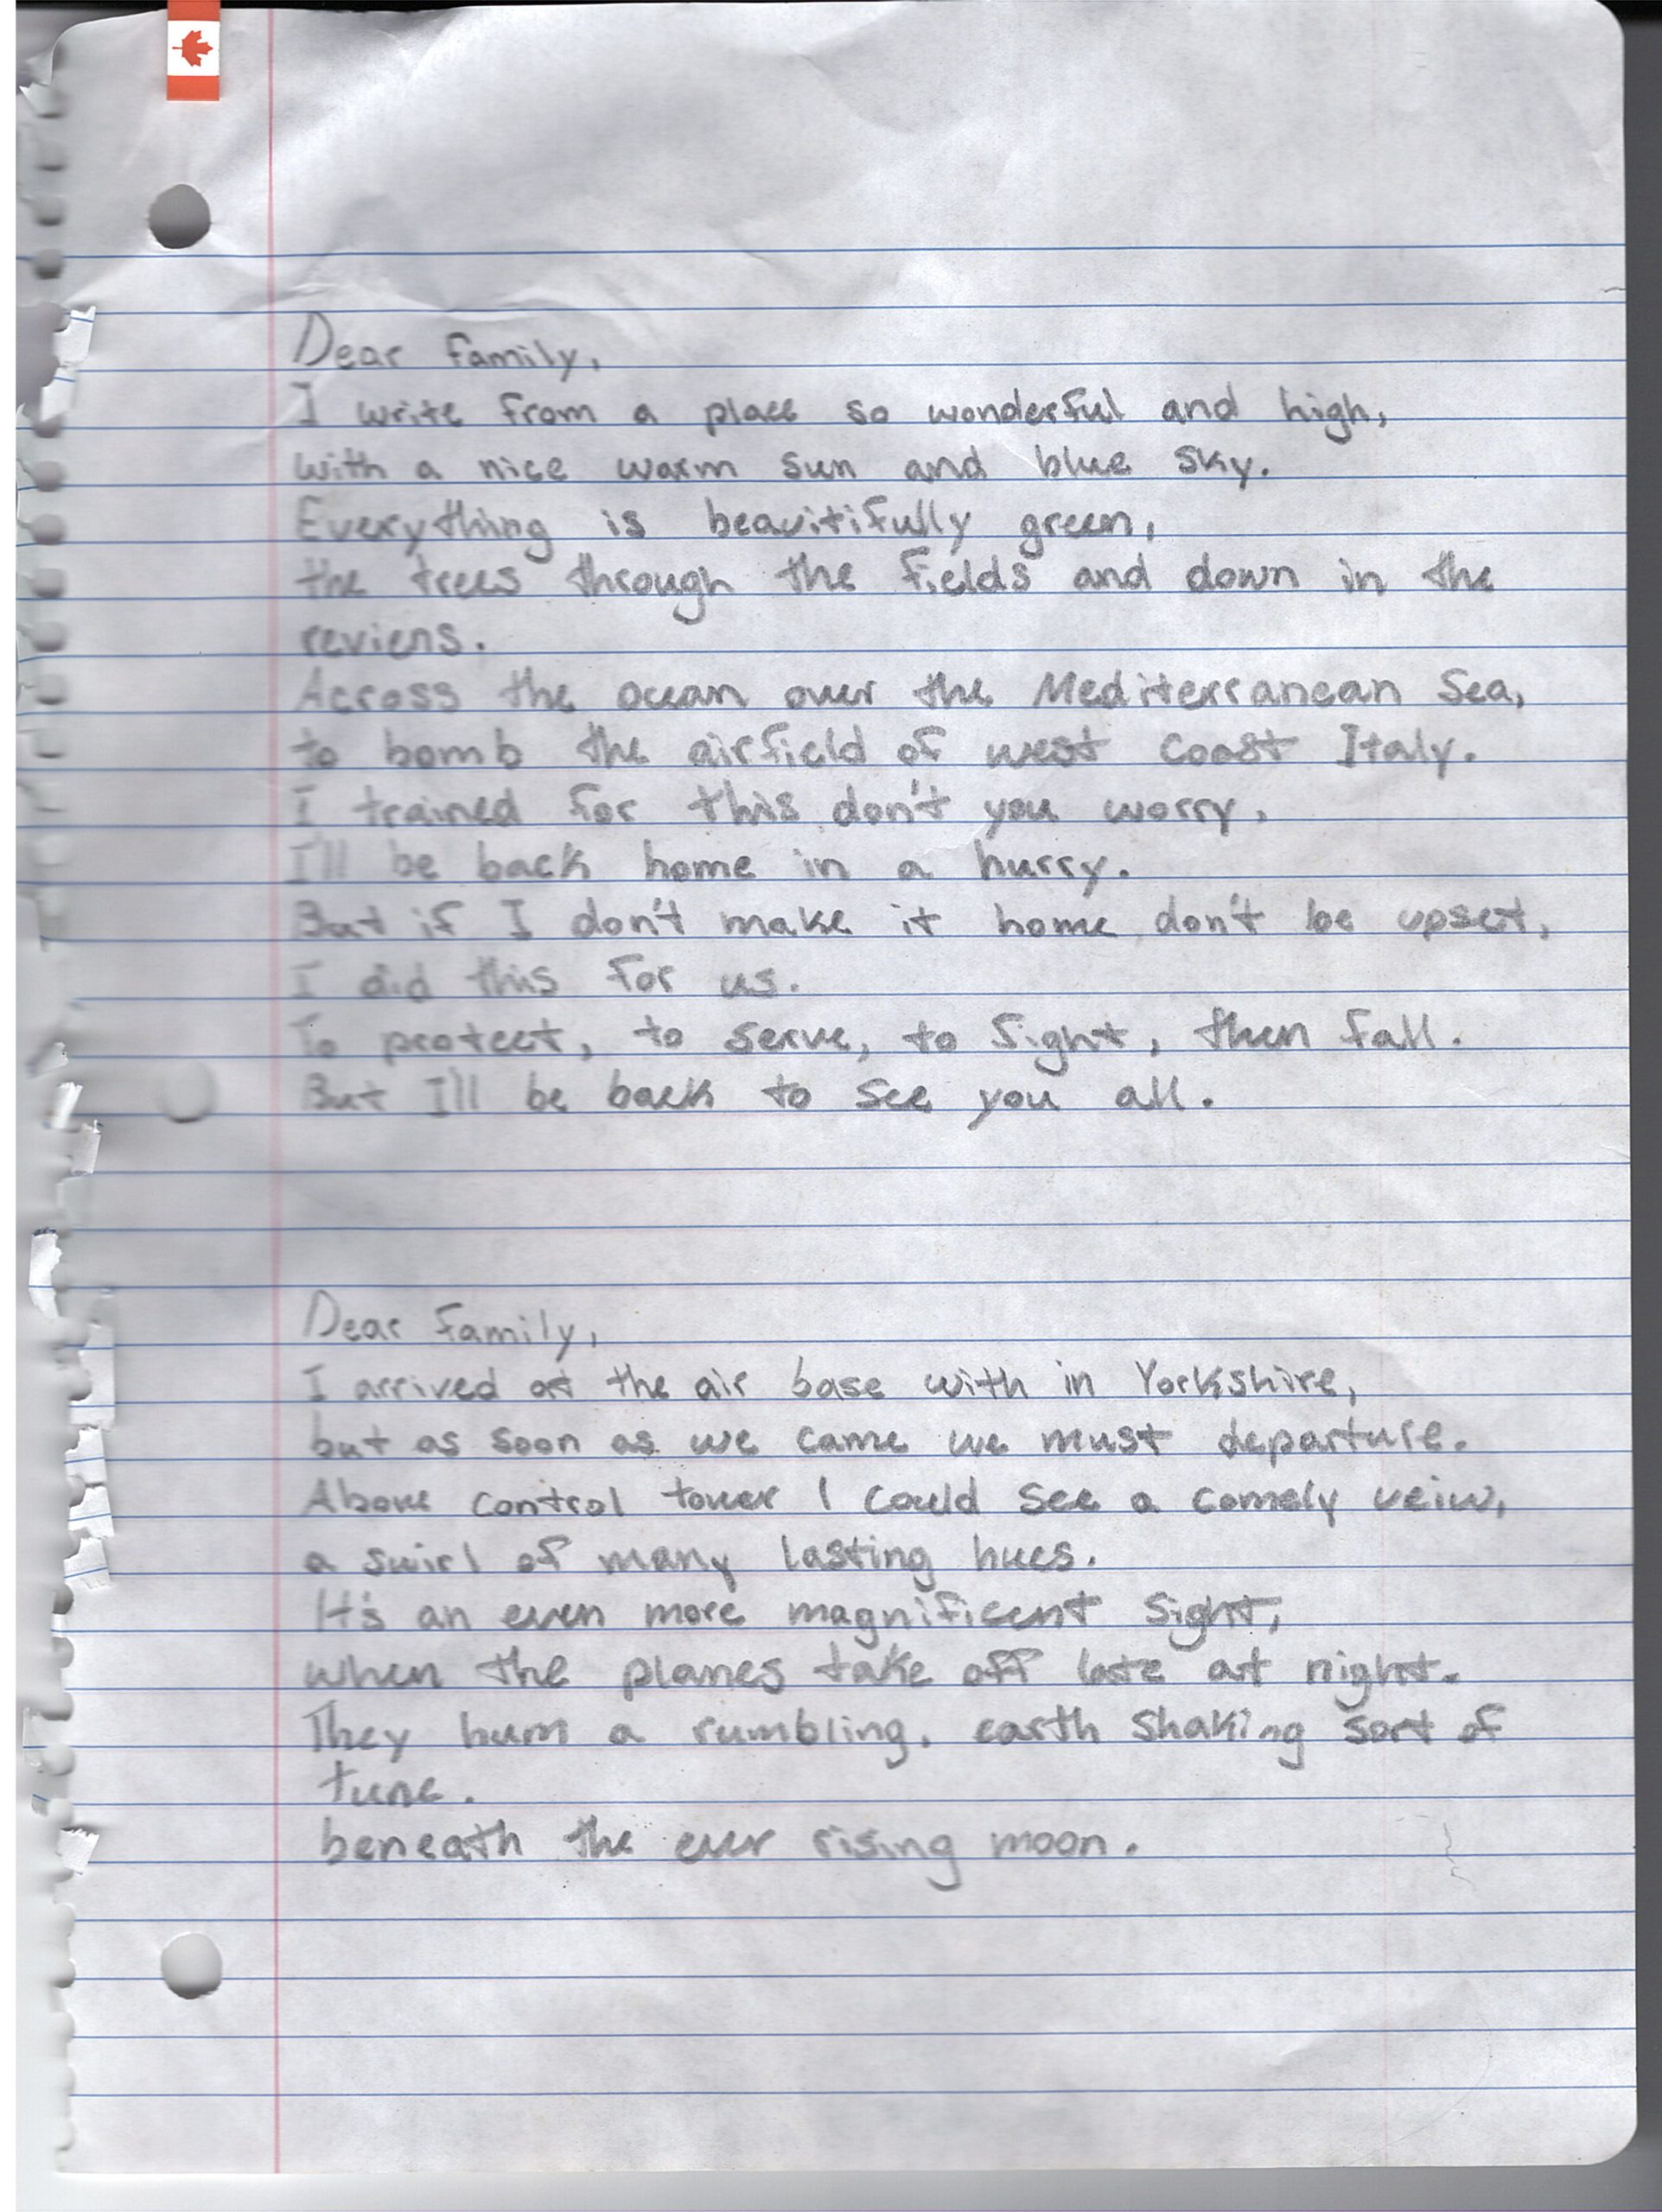 Dear family,
I write from a place so wonderful and high,
with a nice warm sun and blue sky.
Everything is beauitifully green,
the trees through the fields and down in the
reviens.
Across the ocean over the Mediterranean Sea,
to bomb the airfield of west coast Italy.
I trained for this don't you worry,
I'll be back home in a hurry.
But if I don't make it home, don't be upset,
I did this for us.
To protect, to serve, to fight, then fall.
But I'll be back to see you all.
Dear family,
I arrived at the air base with in Yorkshire,
but as soon as we came we must departure.
Above control tower I could see a comely veiw,
a swirl of many lasting hues.
It's an even more magnificent sight,
when the planes take off late at night.
They hum a rumbling, earth shaking sort of
tune.
beneath the ever rising moon.